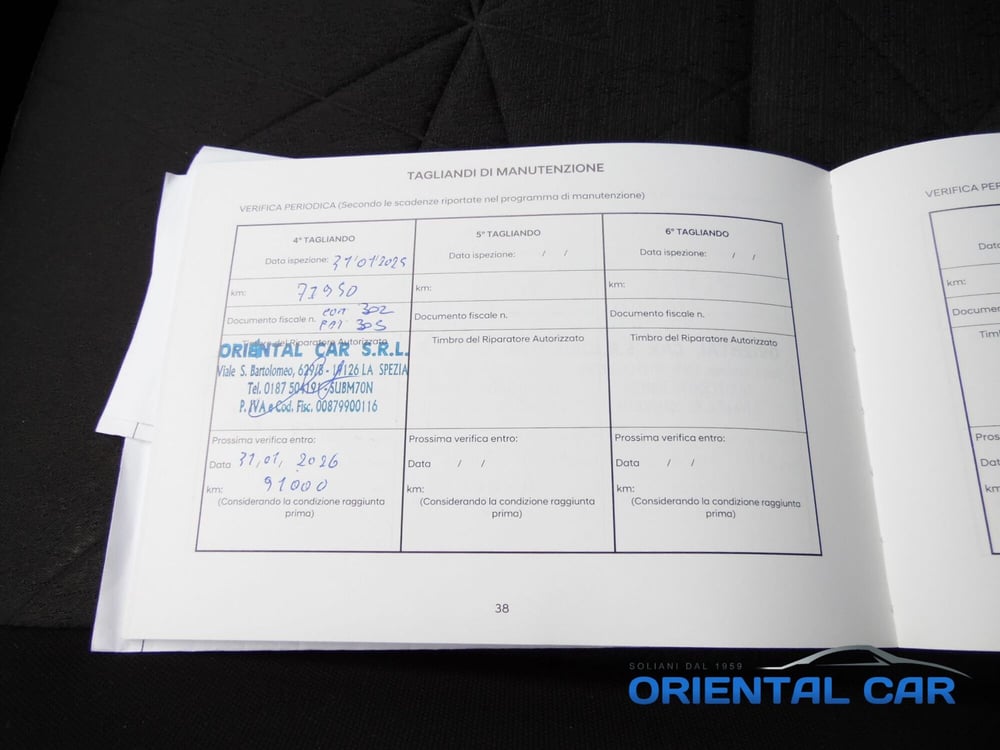 TAGLIANDI DI MANUTENZIONE
VERIFICA PERIODICA (Secondo le scadenze riportate nel programma di manutenzione)
4° TAGLIANDO
Data ispezione: 31/01/2025
km: 71950
Documento fiscale n. 302
305
Timbro del Riparatore Autorizzato
ORIENTAL CAR S.R.L.
Viale S. Bartolomeo, 629/B - 19126 LA SPEZIA
Tel. 0187 504191 - SUBM70N
P. IVA e Cod. Fisc. 00879900116
Prossima verifica entro:
Data 31, 01, 2026
km: 91000
(Considerando la condizione raggiunta
prima)
5° TAGLIANDO
Data ispezione: / /
km:
Documento fiscale n.
Timbro del Riparatore Autorizzato
Prossima verifica entro:
Data / /
km:
(Considerando la condizione raggiunta
prima)
6° TAGLIANDO
Data ispezione: / /
km:
Documento fiscale n.
Timbro del Riparatore Autorizzato
Prossima verifica entro:
Data / /
km:
(Considerando la condizione raggiunta
prima)
38
VERIFICA PER
Data
km:
Documen
Tim
Pros
Dat
km
SOLIANI DAL 1959
ORIENTAL CAR